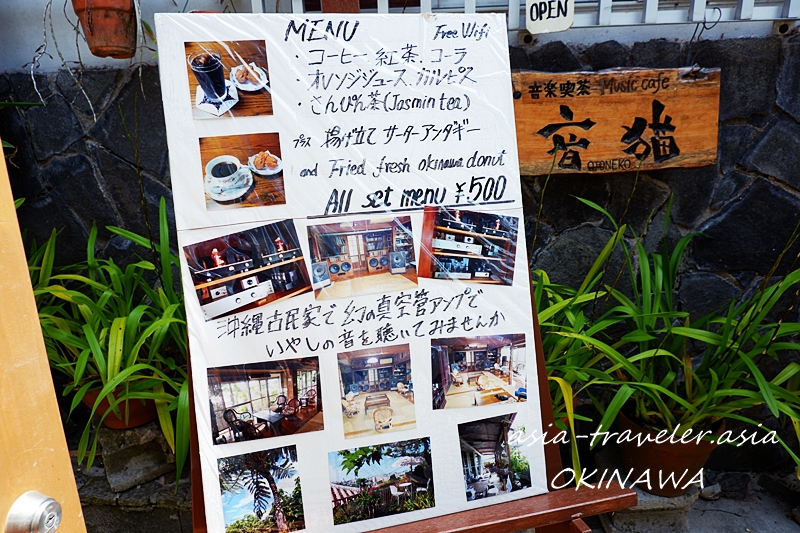 MENU Free Wifi
・コーヒー.紅茶.コーラ
・オレンジジュース.カルピス
・さんぴん茶(Jasmin tea)
プラス 揚げ立て サーターアンダギー
and Fried fresh okinawa donut
All set menu ¥500
沖縄古民家で幻の真空管アンプで
いやしの音を聴いてみませんか
OPEN
音楽喫茶 Music cafe
音猫
OTONEKO
asia-traveler.asia
OKINAWA